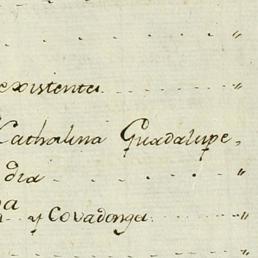 existentes. . . . . . "
Cathalina Guadalupe, "
dia . . . . . "
y Covadonga. . . . . "